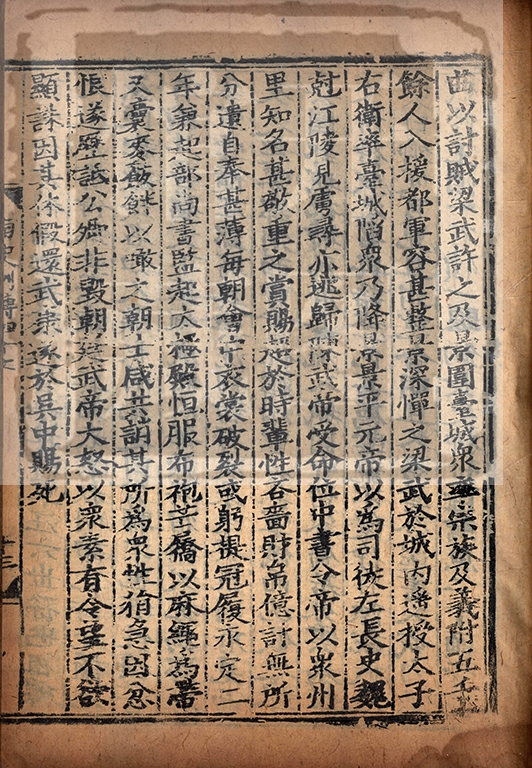 曲以討賊梁武許之及景圍臺城衆率宗族及義附五千
餘人入援都軍容甚整景深憚之梁武於城內遙授太子
右衛率臺城陷衆乃降景景平元帝以爲司徒左長史魏
尅江陵見虜尋亦逃歸陳武帝受命位中書令帝以衆州
里知名甚敬重之賞賜超於時輩性吝嗇財帛億計無所
分遺自奉甚薄每朝會中衣裳破裂或躬提冠履永定二
年兼起部尚書監起太極殿恒服布袍芒屩以麻繩爲帶
又囊麥飯餅以噉之朝士咸共誚其所爲衆性狷急因忿
恨遂歷詆公卿非毀朝廷武帝大怒以衆素有令望不欲
顯誅因其休假還武康遂於吳中賜死
南史 傳四十七